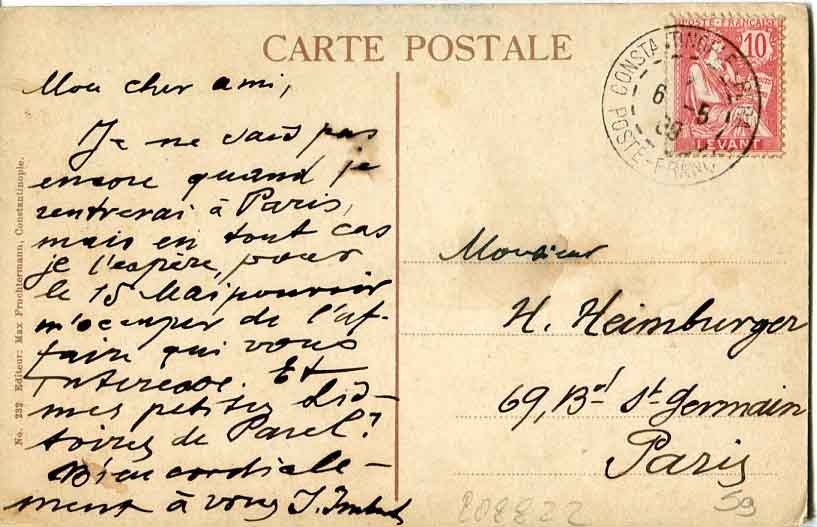 CARTE POSTALE
Mon cher ami,
Je ne sais pas
encore quand je
rentrerai à Paris,
mais en tout cas
je l'espère, pour
le 15 Mai pouvoir
m'occuper de l'af-
faire qui vous
interesse. Et
mes petites his-
toires de Parel?
Bien cordiale-
ment à vous
No. 232 Editeur: Max Fruchtermann, Constantinople.
POSTE-FRANÇAISE
10
LEVANT
POSTE-FRANC
6 -5
Monsieur
H. Heimburger
69, Bd St Germain
Paris
59